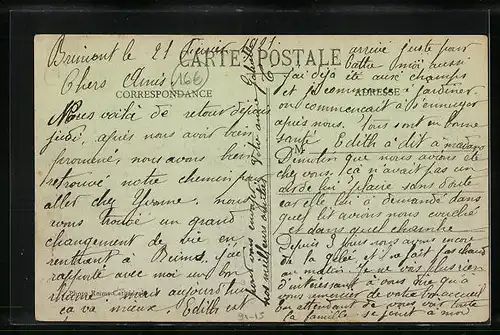 Brimont le 21 Février 1921
CARTE POSTALE
Chers Amis
166
CORRESPONDANCE
ADRESSE
Nous voilà de retour depuis
jeudi, après nous avoir bien
promené, nous avons bien
retrouvé notre chemin pour
aller chez Yvonne. nous
avons trouvé un grand
changement de vie en
rentrant à Reims. j'ai
rapporté avec moi un bon
rhume mais aujourd'hui
ça va mieux. Edith est
arrivé juste pour
battre moi aussi
j'ai déjà été aux champs
et je commence à jardiner.
on commençait à s'ennuyer
après nous. Tous sont en bonne
santé. Edith a dit à madame
que nous avions été
chez vous, ça n'avait pas un
air de lui plaire sans doute
car elle lui a demandé dans
quel lit avions nous couché
et dans quel chambre
Depuis 3 jours nous avons encore
de la gelée et ne fait pas chaud
au matin. Je ne vois plus rien
d'intéressant à vous que qu'à
vous remercier de votre bon accueil
en attendant de vous voir toute
la famille se joint à moi
pour vous envoyer
nos meilleurs amitiés
Votre amie
91-15